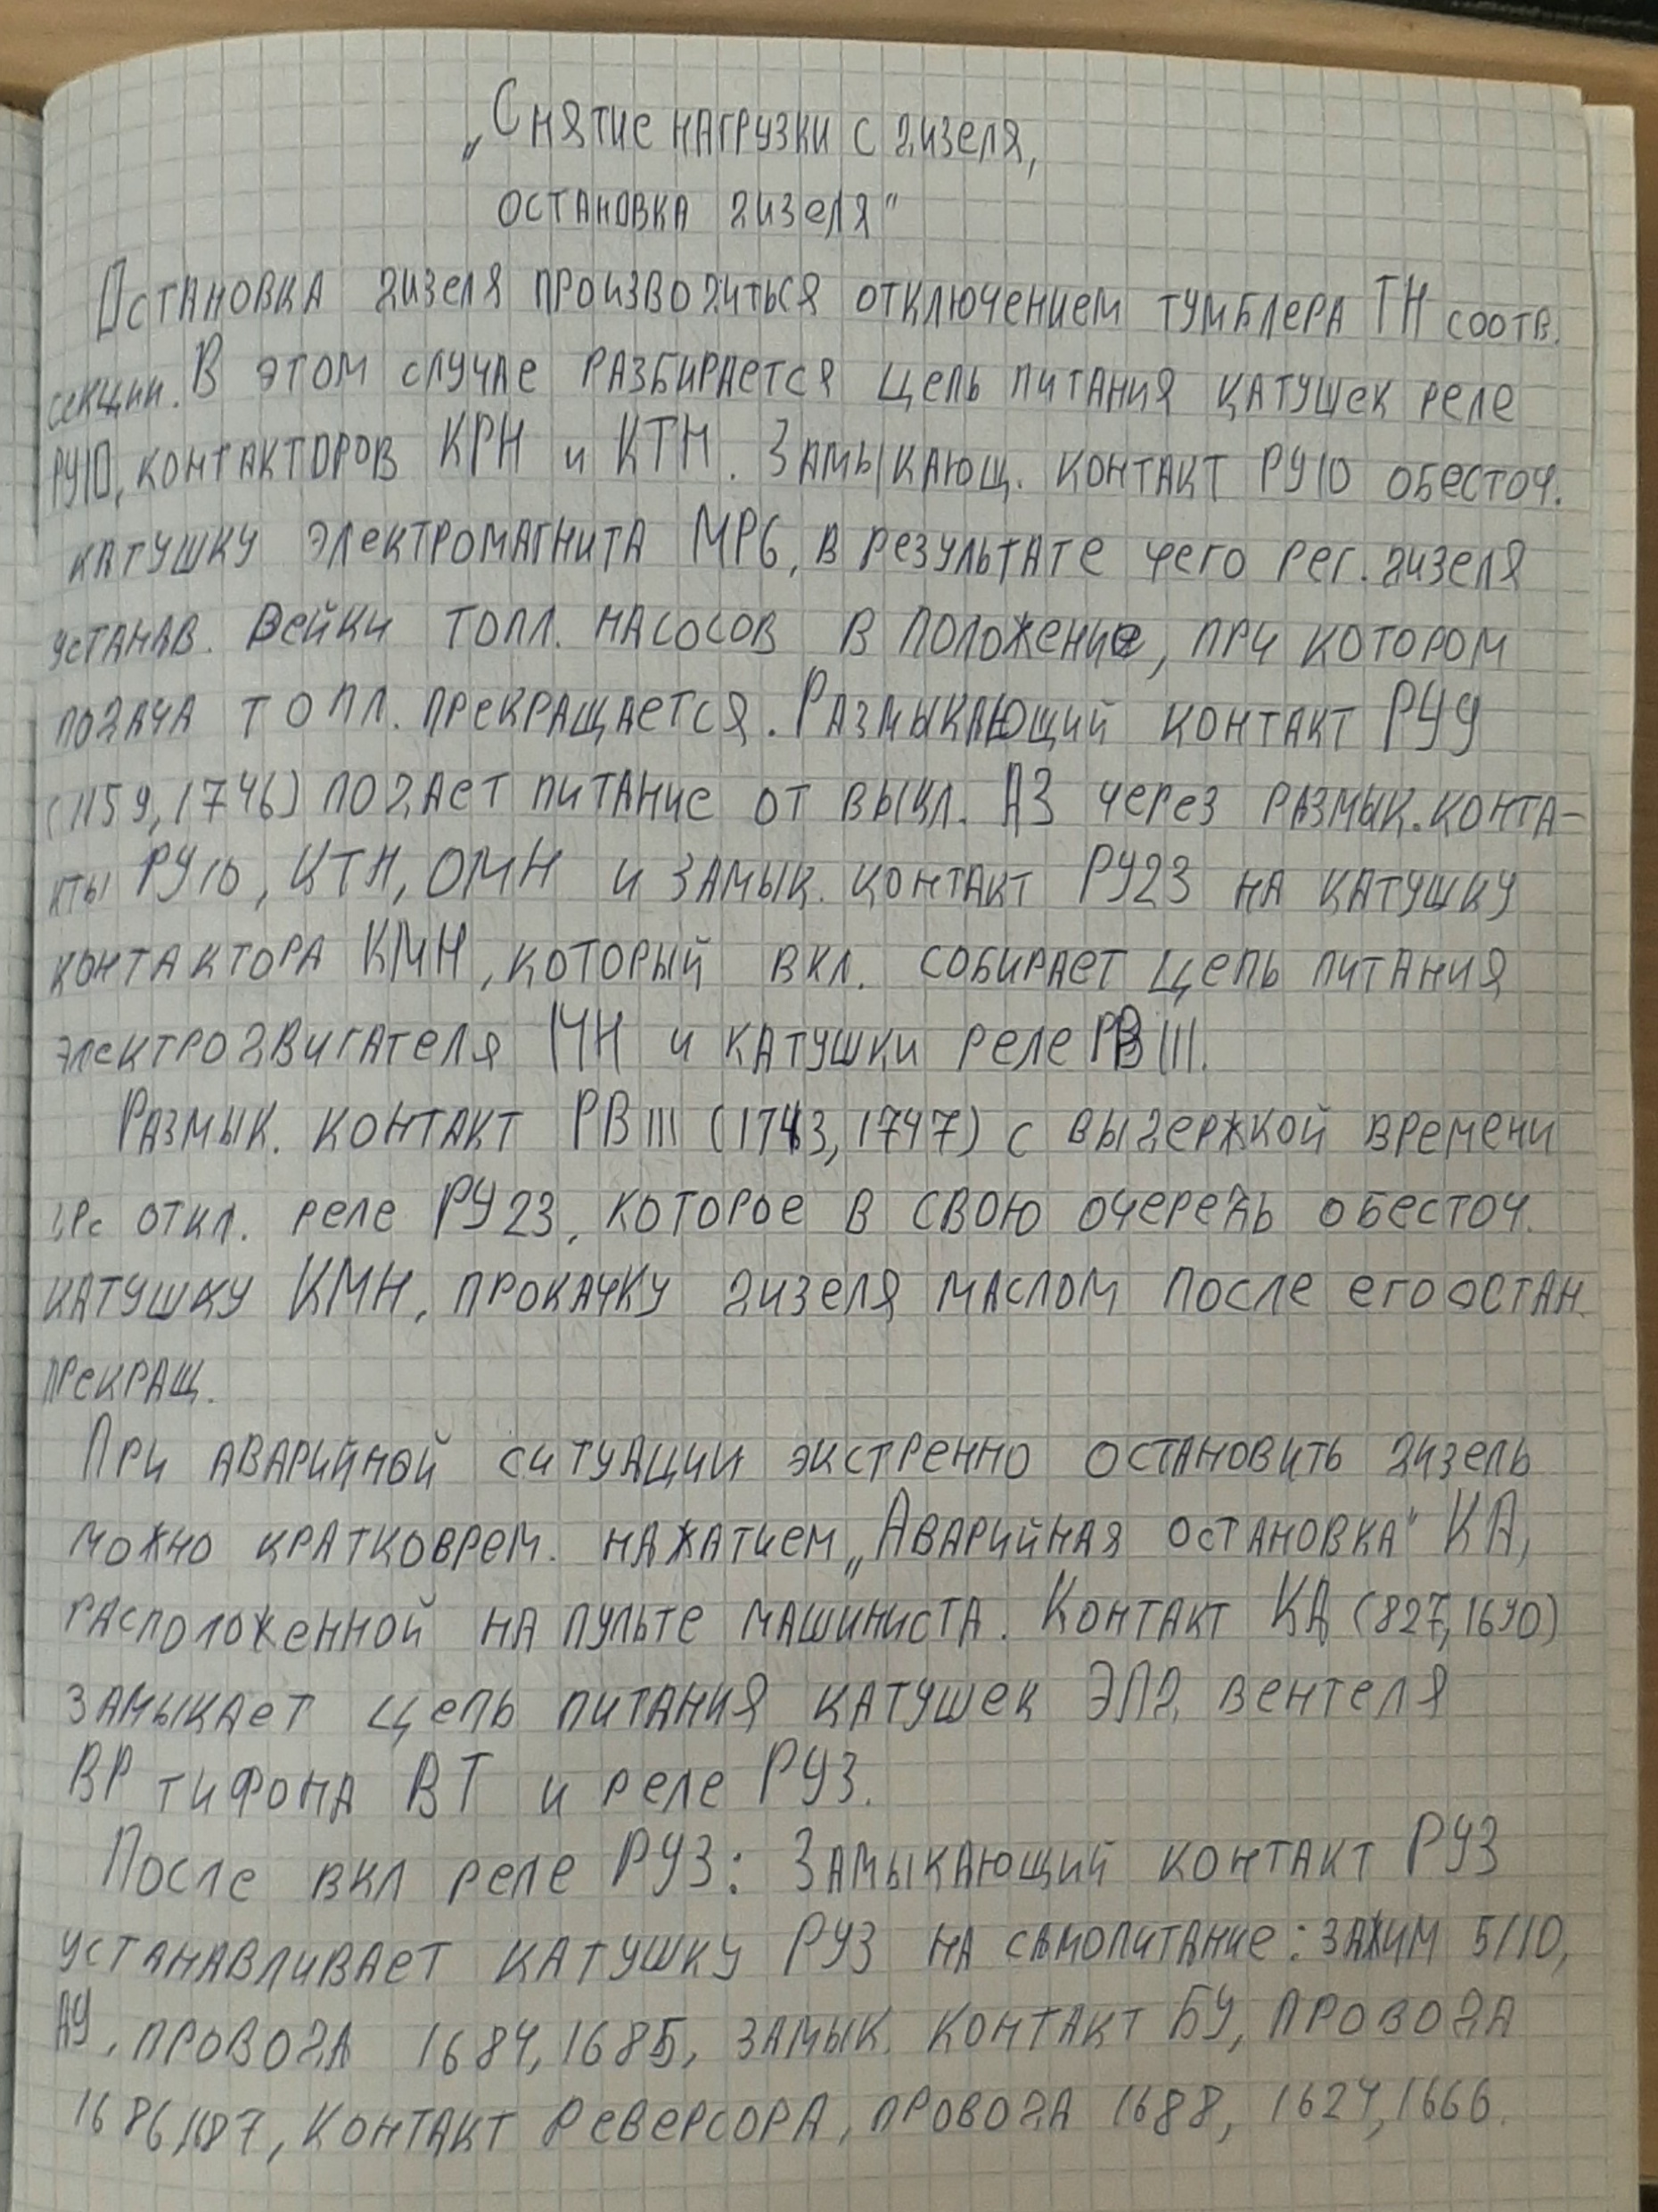 „Снятие нагрузки с дизеля,
остановка дизеля"
Остановка дизеля производиться отключением тумблера ТН соотв.
секции. В этом случае разбирается цепь питания катушек реле
РУ10, контакторов КРН и КТН. Замыкающ. контакт РУ10 обесточ.
катушку электромагнита МР6, в результате чего рег. дизеля
устанав. рейки топл. насосов в положение, при котором
подача топл. прекращается. Размыкающий контакт РУ9
(1159, 1746) подает питание от выкл. А3 через размык. конта-
кты РУ10, КТН, ОМН и замык. контакт РУ23 на катушку
контактора КМН, который вкл. собирает цепь питания
электродвигателя МН и катушки реле РВIII.
Размык. контакт РВIII (1743, 1747) с выдержкой времени
откл. реле РУ23, которое в свою очередь обесточ.
катушку КМН, прокачку дизеля маслом после его остан.
прекращ.
При аварийной ситуации экстренно остановить дизель
можно кратковрем. нажатием „Аварийная остановка" КА,
расположенной на пульте машиниста. Контакт КА (827, 1690)
замыкает цепь питания катушек ЭПД, вентеля
ВР тифона ВТ и реле РУ3.
После вкл реле РУ3: Замыкающий контакт РУ3
устанавливает катушку РУ3 на самопитание: зажим 5/10,
АУ, провода 1684, 1685, замык. контакт БУ, провода
1686, 1687, контакт реверсора, провода 1688, 1624, 1666.